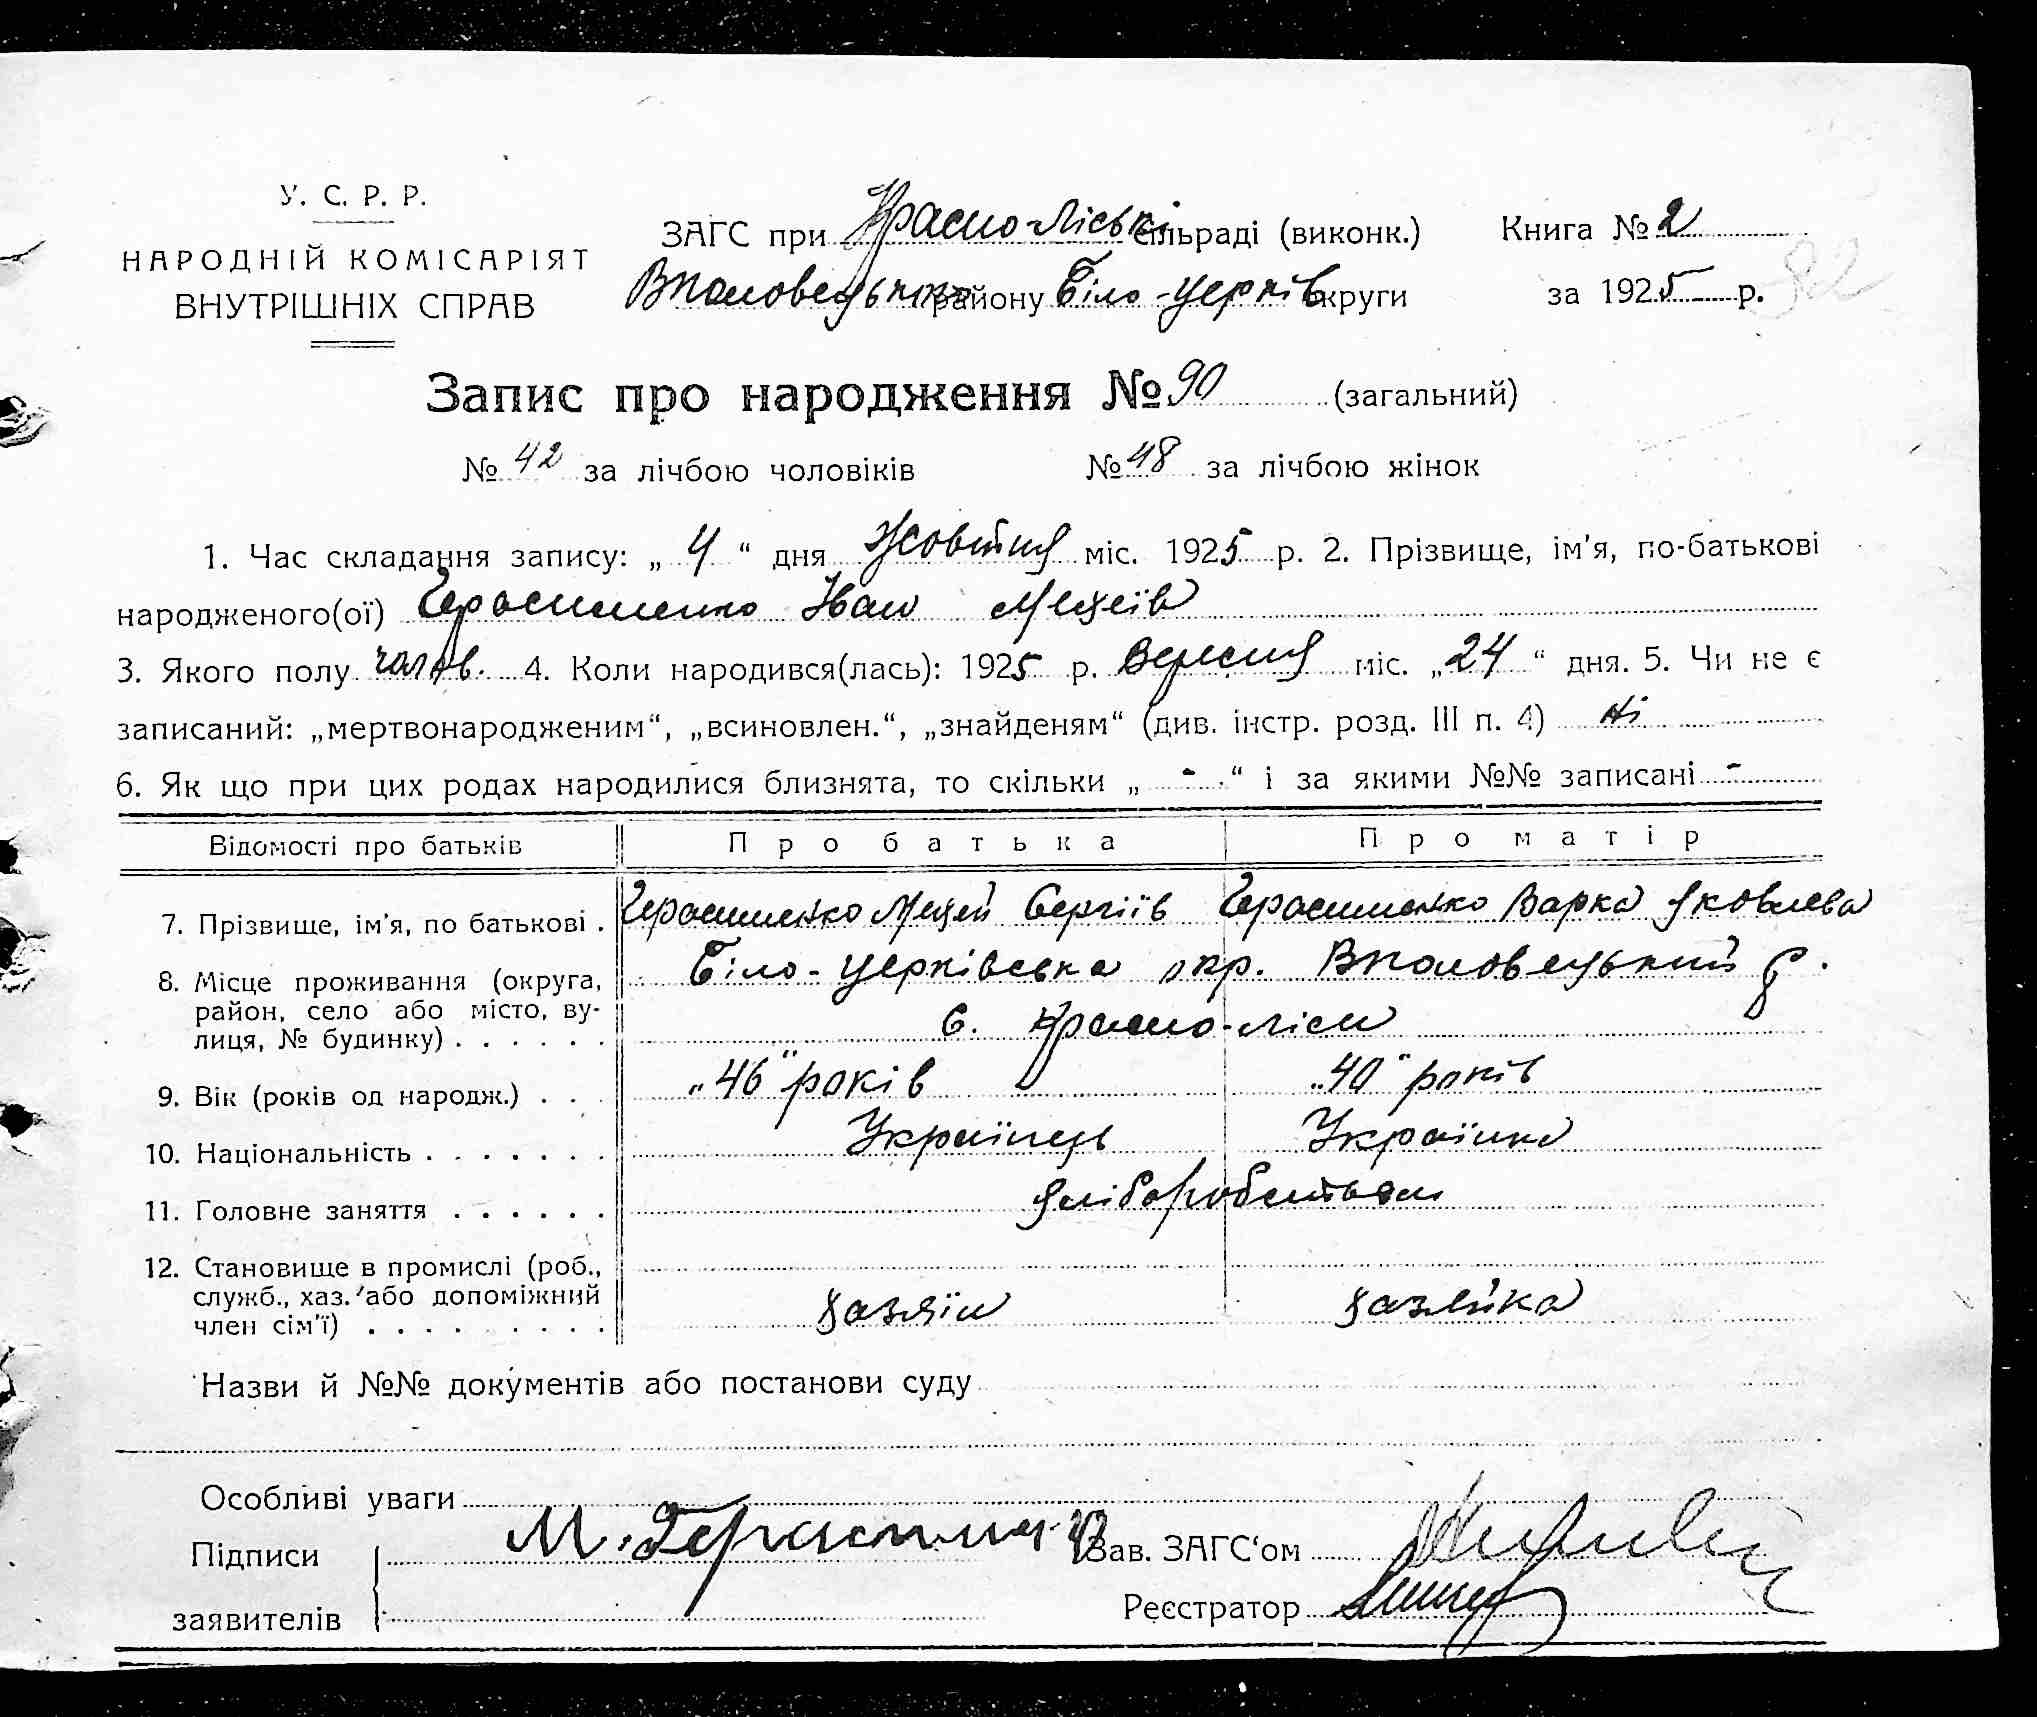 У. С. Р. Р.
НАРОДНІЙ КОМІСАРІЯТ
ВНУТРІШНІХ СПРАВ
ЗАГС при Красно-Ліській сільраді (виконк.) Книга № 2
Вполовецького району Біло-церків округи за 1925 р.
82
Запис про народження № 90 (загальний)
№ 42 за лічбою чоловіків № 48 за лічбою жінок
1. Час складання запису: „ 4 “ дня Жовтня міс. 1925 р. 2. Прізвище, ім'я, по-батькові
народженого(ої) Герасименко Іван Мецеїв
3. Якого полу чолов. 4. Коли народився(лась): 1925 р. Вересня міс. „ 24 “ дня. 5. Чи не є
записаний: „мертвонародженим“, „всиновлен.“, „знайденям“ (див. інстр. розд. III п. 4) Ні
6. Як що при цих родах народилися близнята, то скільки „ - “ і за якими №№ записані -
Відомості про батьків Про батька Про матір
7. Прізвище, ім'я, по батькові . Герасименко Мецей Сергіїв Герасименко Варка Яковлева
8. Місце проживання (округа, Біло-церківська окр. Вполовецький р.
район, село або місто, ву-
лиця, № будинку) . . . . . . с. Красно-ліси
9. Вік (років од народж.) . . . „46“ років „40“ років
10. Національність . . . . . . . Українець Українка
11. Головне заняття . . . . . . хліборобством
12. Становище в промислі (роб.,
служб., хаз. або допоміжний хазяїн хазяйка
член сім'ї) . . . . . . . . .
Назви й №№ документів або постанови суду
Особливі уваги
Підписи М. Герасимен Зав. ЗАГС‘ом
заявителів Реєстратор